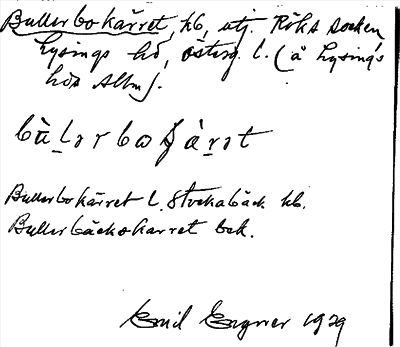 Bullerbokärret, kb, utj. Röks socken,
Lysings hd, Österg. l. (å Lysings
hds Allm).
Bullerbokärret l. Stockabäck kb.
Bullerbäckakarret bek.
Emil 1929